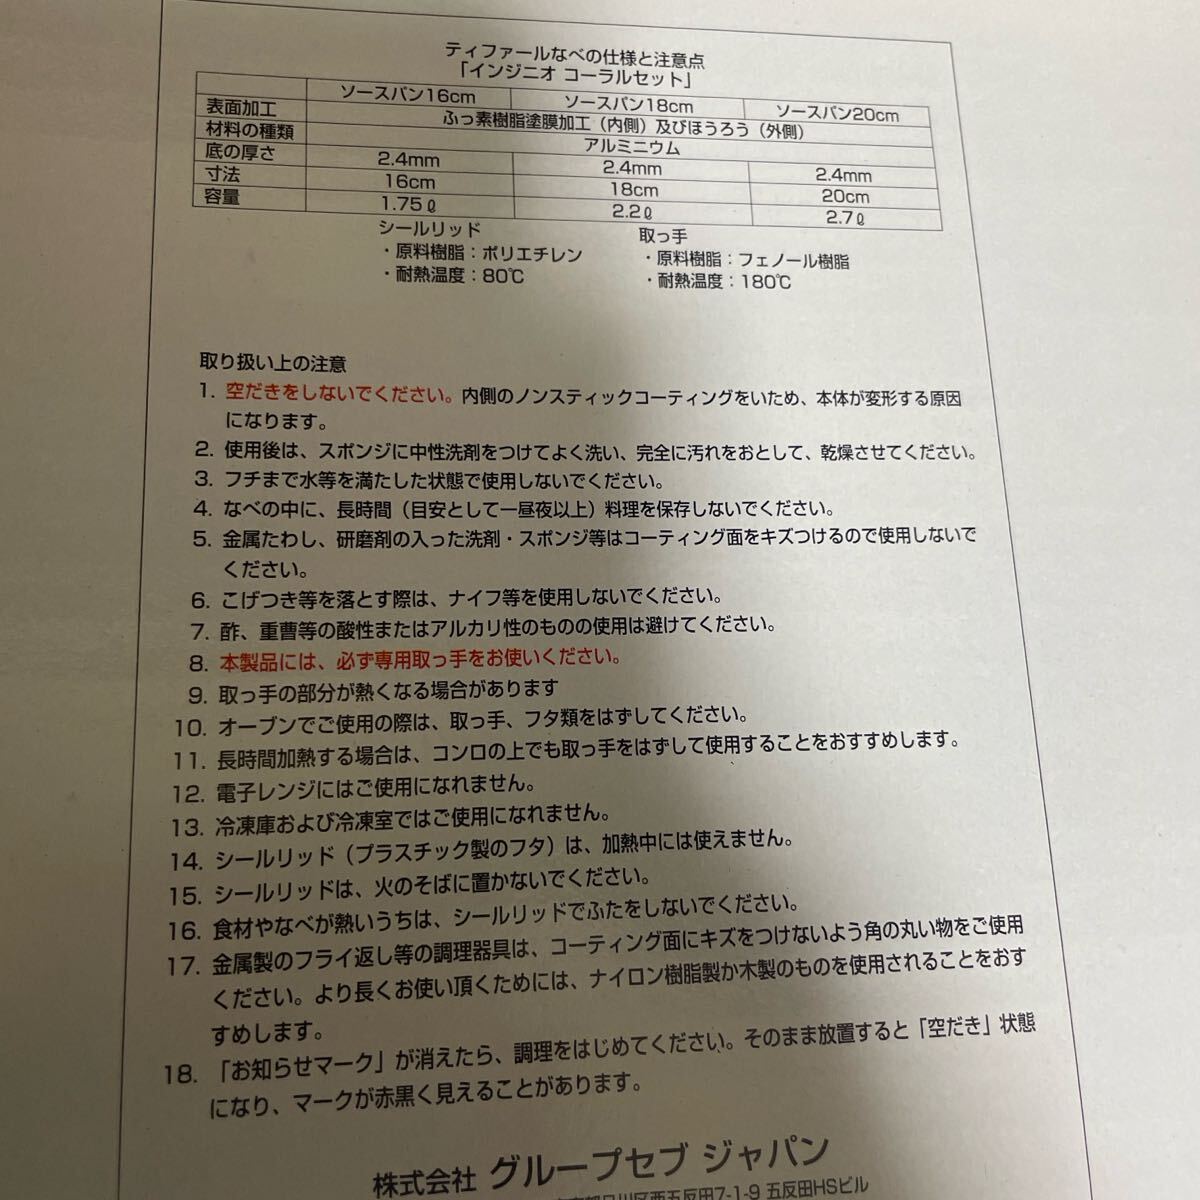 ティファールなべの仕様と注意点
「インジニオ コーラルセット」
ソースパン16cm ソースパン18cm ソースパン20cm
表面加工 ふっ素樹脂塗膜加工（内側）及びほうろう（外側）
材料の種類 アルミニウム
底の厚さ 2.4mm 2.4mm 2.4mm
寸法 16cm 18cm 20cm
容量 1.75ℓ 2.2ℓ 2.7ℓ
シールリッド 取っ手
・原料樹脂：ポリエチレン ・原料樹脂：フェノール樹脂
・耐熱温度：80℃ ・耐熱温度：180℃
取り扱い上の注意
1. 空だきをしないでください。内側のノンスティックコーティングをいため、本体が変形する原因
になります。
2. 使用後は、スポンジに中性洗剤をつけてよく洗い、完全に汚れをおとして、乾燥させてください。
3. フチまで水等を満たした状態で使用しないでください。
4. なべの中に、長時間（目安として一昼夜以上）料理を保存しないでください。
5. 金属たわし、研磨剤の入った洗剤・スポンジ等はコーティング面をキズつけるので使用しないで
ください。
6. こげつき等を落とす際は、ナイフ等を使用しないでください。
7. 酢、重曹等の酸性またはアルカリ性のものの使用は避けてください。
8. 本製品には、必ず専用取っ手をお使いください。
9. 取っ手の部分が熱くなる場合があります
10. オーブンでご使用の際は、取っ手、フタ類をはずしてください。
11. 長時間加熱する場合は、コンロの上でも取っ手をはずして使用することをおすすめします。
12. 電子レンジにはご使用になれません。
13. 冷凍庫および冷凍室ではご使用になれません。
14. シールリッド（プラスチック製のフタ）は、加熱中には使えません。
15. シールリッドは、火のそばに置かないでください。
16. 食材やなべが熱いうちは、シールリッドでふたをしないでください。
17. 金属製のフライ返し等の調理器具は、コーティング面にキズをつけないよう角の丸い物をご使用
ください。より長くお使い頂くためには、ナイロン樹脂製か木製のものを使用されることをおす
すめします。
18. 「お知らせマーク」が消えたら、調理をはじめてください。そのまま放置すると「空だき」状態
になり、マークが赤黒く見えることがあります。
株式会社 グループセブ ジャパン
品川区西五反田7-1-9 五反田HSビル